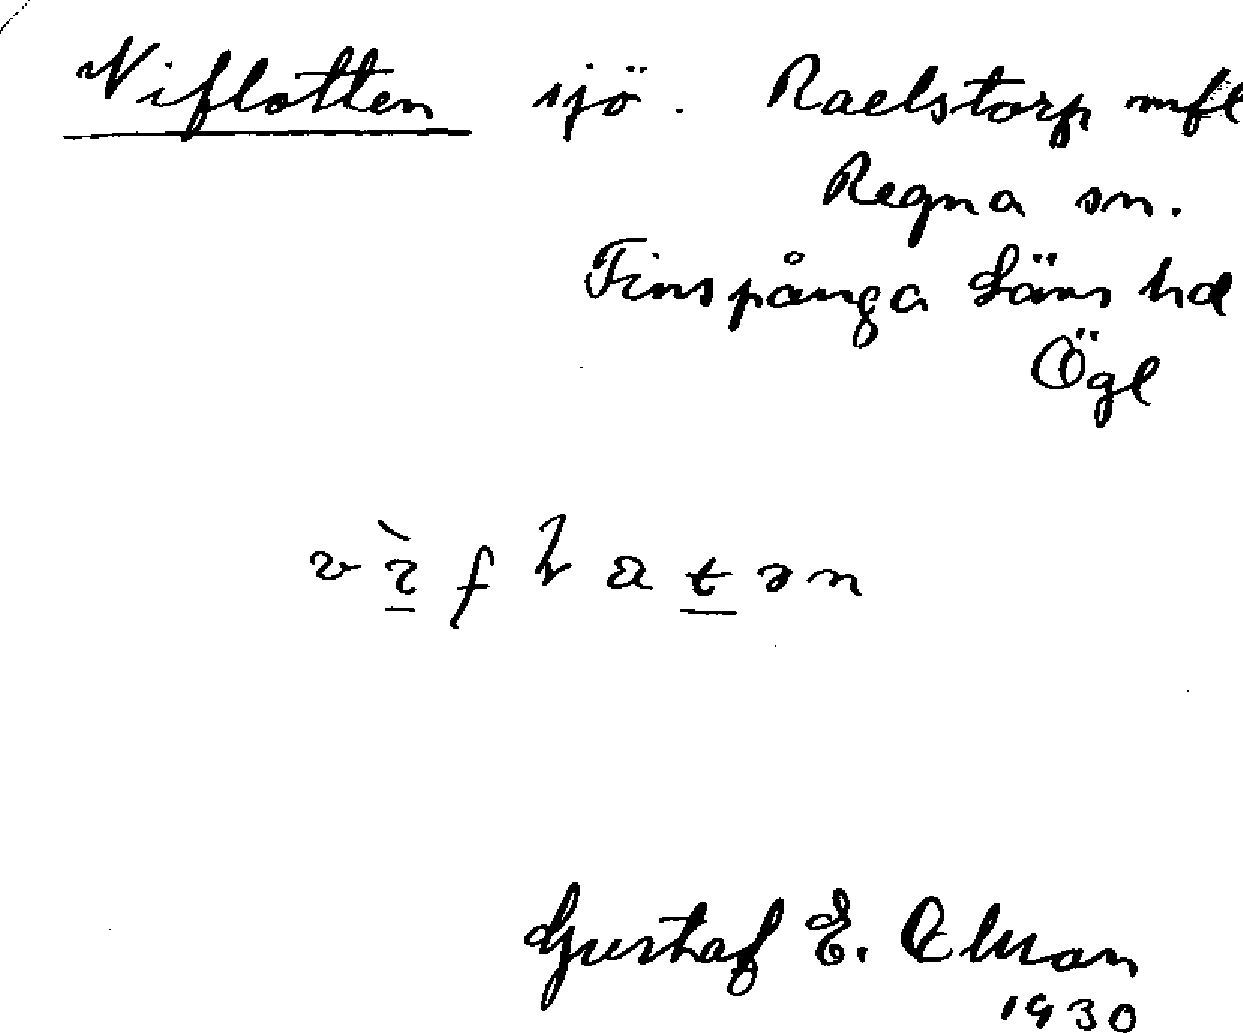 Viflotten sjö. Raelstorp mfl
Regna sn.
Finspånga Läns hd
Ögl
Gustaf E.
1930